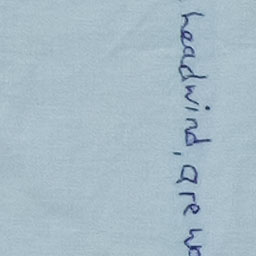 headwind, are